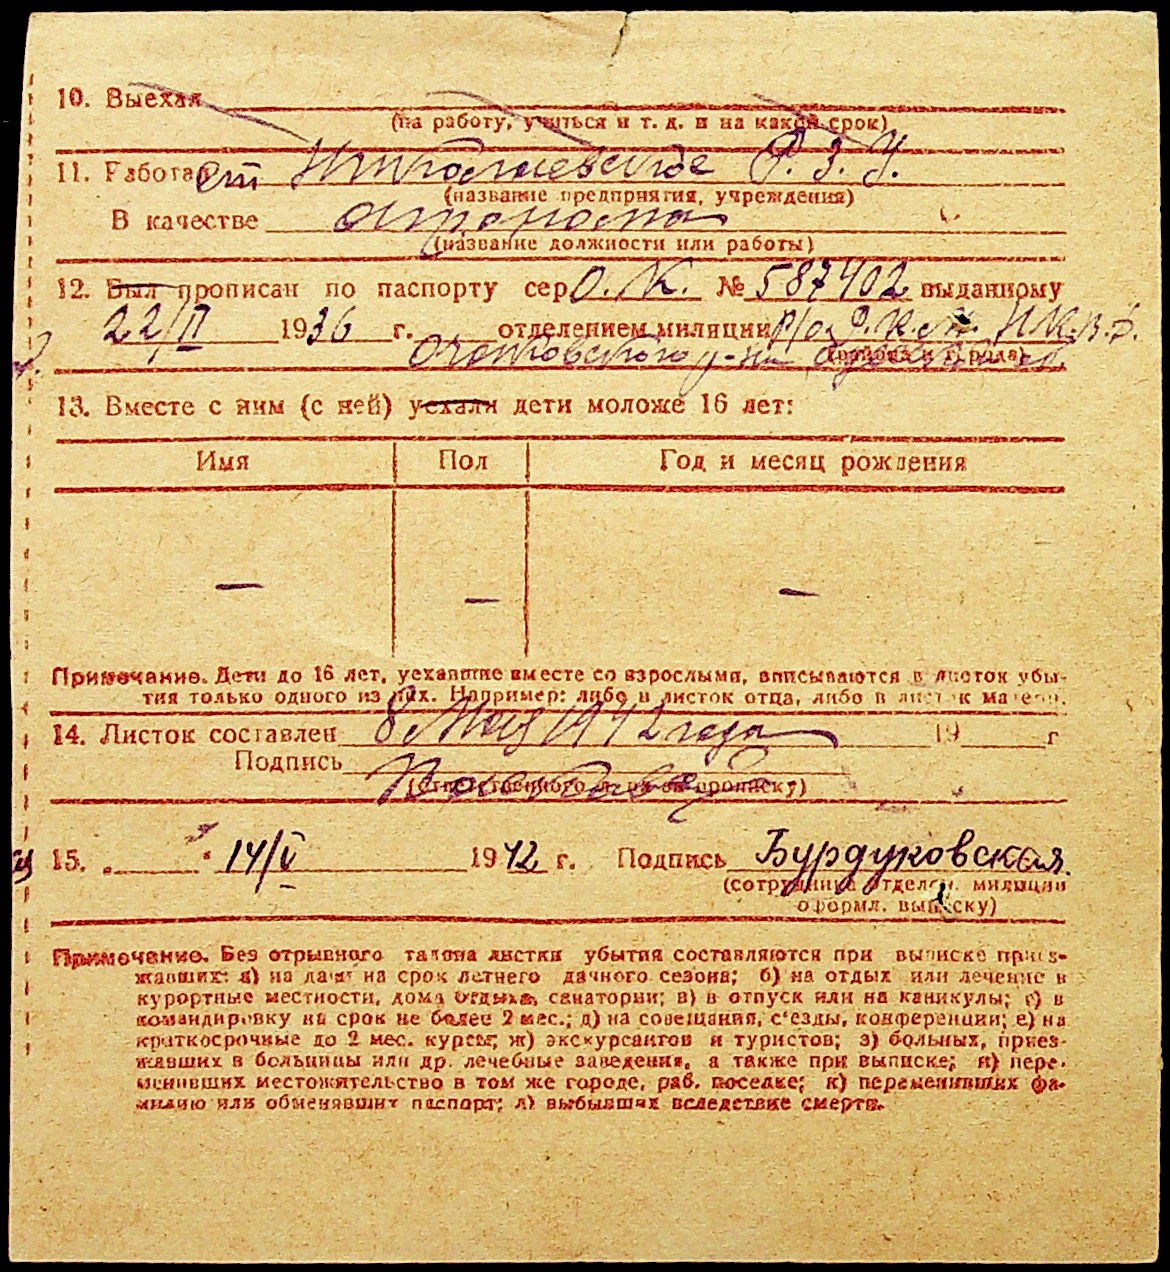 10. Выехал
(на работу, учиться и т. д. и на какой срок)
11. Работает Николаевское Р. З. У.
(название предприятия, учреждения)
В качестве агронома
(название должности или работы)
12. Был прописан по паспорту сер. О. К. № 587402 выданному
22/II 1936 г. отделением милиции р/о Р. К. М. Н.К.В.Д.
Очаковского р-на
13. Вместе с ним (с ней) уехали дети моложе 16 лет:
Имя Пол Год и месяц рождения
— — —
Примечание. Дети до 16 лет, уехавшие вместе со взрослыми, вписываются в листок убы-
тия только одного из них. Например: либо в листок отца, либо в листок матери.
14. Листок составлен 8 Мая 1942 года 19 г
Подпись
(ответственного лица за прописку)
15. „ " 14/V 1942 г. Подпись Бурдуковская
(сотрудника отделен. милиции
оформл. выписку)
Примечание. Без отрывного талона листки убытия составляются при выписке приез-
жавших: а) на дачи на срок летнего дачного сезона; б) на отдых или лечение в
курортные местности, дома отдыха, санатории; в) в отпуск или на каникулы; г) в
командировку на срок не более 2 мес.; д) на совещания, с'езды, конференции; е) на
краткосрочные до 2 мес. курсы; ж) экскурсантов и туристов; з) больных, приез-
жавших в больницы или др. лечебные заведения, а также при выписке; и) пере-
менивших местожительство в том же городе, раб. поселке; к) переменивших фа-
милию или обменявших паспорт; л) выбывших вследствие смерти.